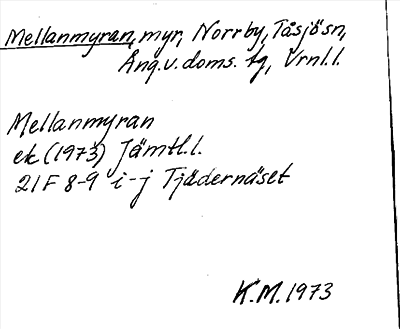 Mellanmyran, myr, Norrby, Tåsjösn,
Ång.v.doms. tg, Vrnl.l.
Mellanmyran
ek (1973) Jämtl.l.
21F 8-9 i-j Tjädernäset
K.M. 1973